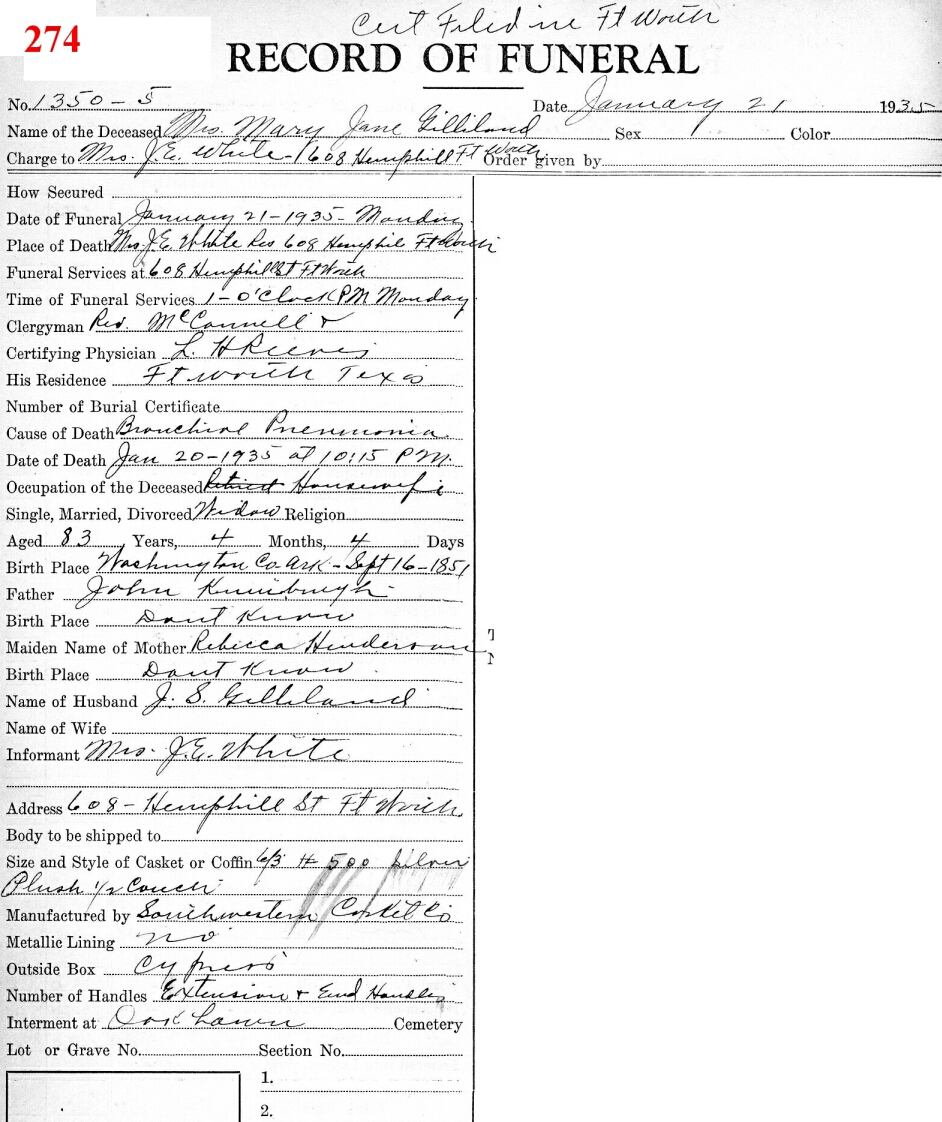 Cert Filed in Ft Worth
274
RECORD OF FUNERAL
No. 1350-5 Date January 21 1935
Name of the Deceased Mrs. Mary Jane Gilliland Sex Color
Charge to Mrs. J.E. White - 1608 Hemphill Ft Worth Order given by
How Secured
Date of Funeral January 21-1935- Monday
Place of Death Mrs J.E. White Res 608 Hemphil Ft Worth
Funeral Services at 608 Hemphill St Ft Worth
Time of Funeral Services 1-O'Clock PM Monday
Clergyman Rev. McConnell
Certifying Physician L. H Reeves
His Residence Ft Worth Texas
Number of Burial Certificate
Cause of Death Bronchial Pneumonia.
Date of Death Jan 20-1935 at 10:15 PM.
Occupation of the Deceased Retired Housewife
Single, Married, Divorced Widow Religion
Aged 83 Years, 4 Months, 4 Days
Birth Place Washington Co. Ark - Sept 16-1851
Father John
Birth Place Dont Know
Maiden Name of Mother Rebecca Henderson
Birth Place Dont Know
Name of Husband J. S. Gilliland
Name of Wife
Informant Mrs. J.E. White
Address 608 - Hemphill St Ft Worth
Body to be shipped to
Size and Style of Casket or Coffin 6/3 # 500 Silver
Plush 1/2 Couch
Manufactured by Southwestern Casket Co
Metallic Lining no
Outside Box Cypress
Number of Handles Extension & End Handles
Interment at Oak Lawn Cemetery
Lot or Grave No. Section No.
1.
2.